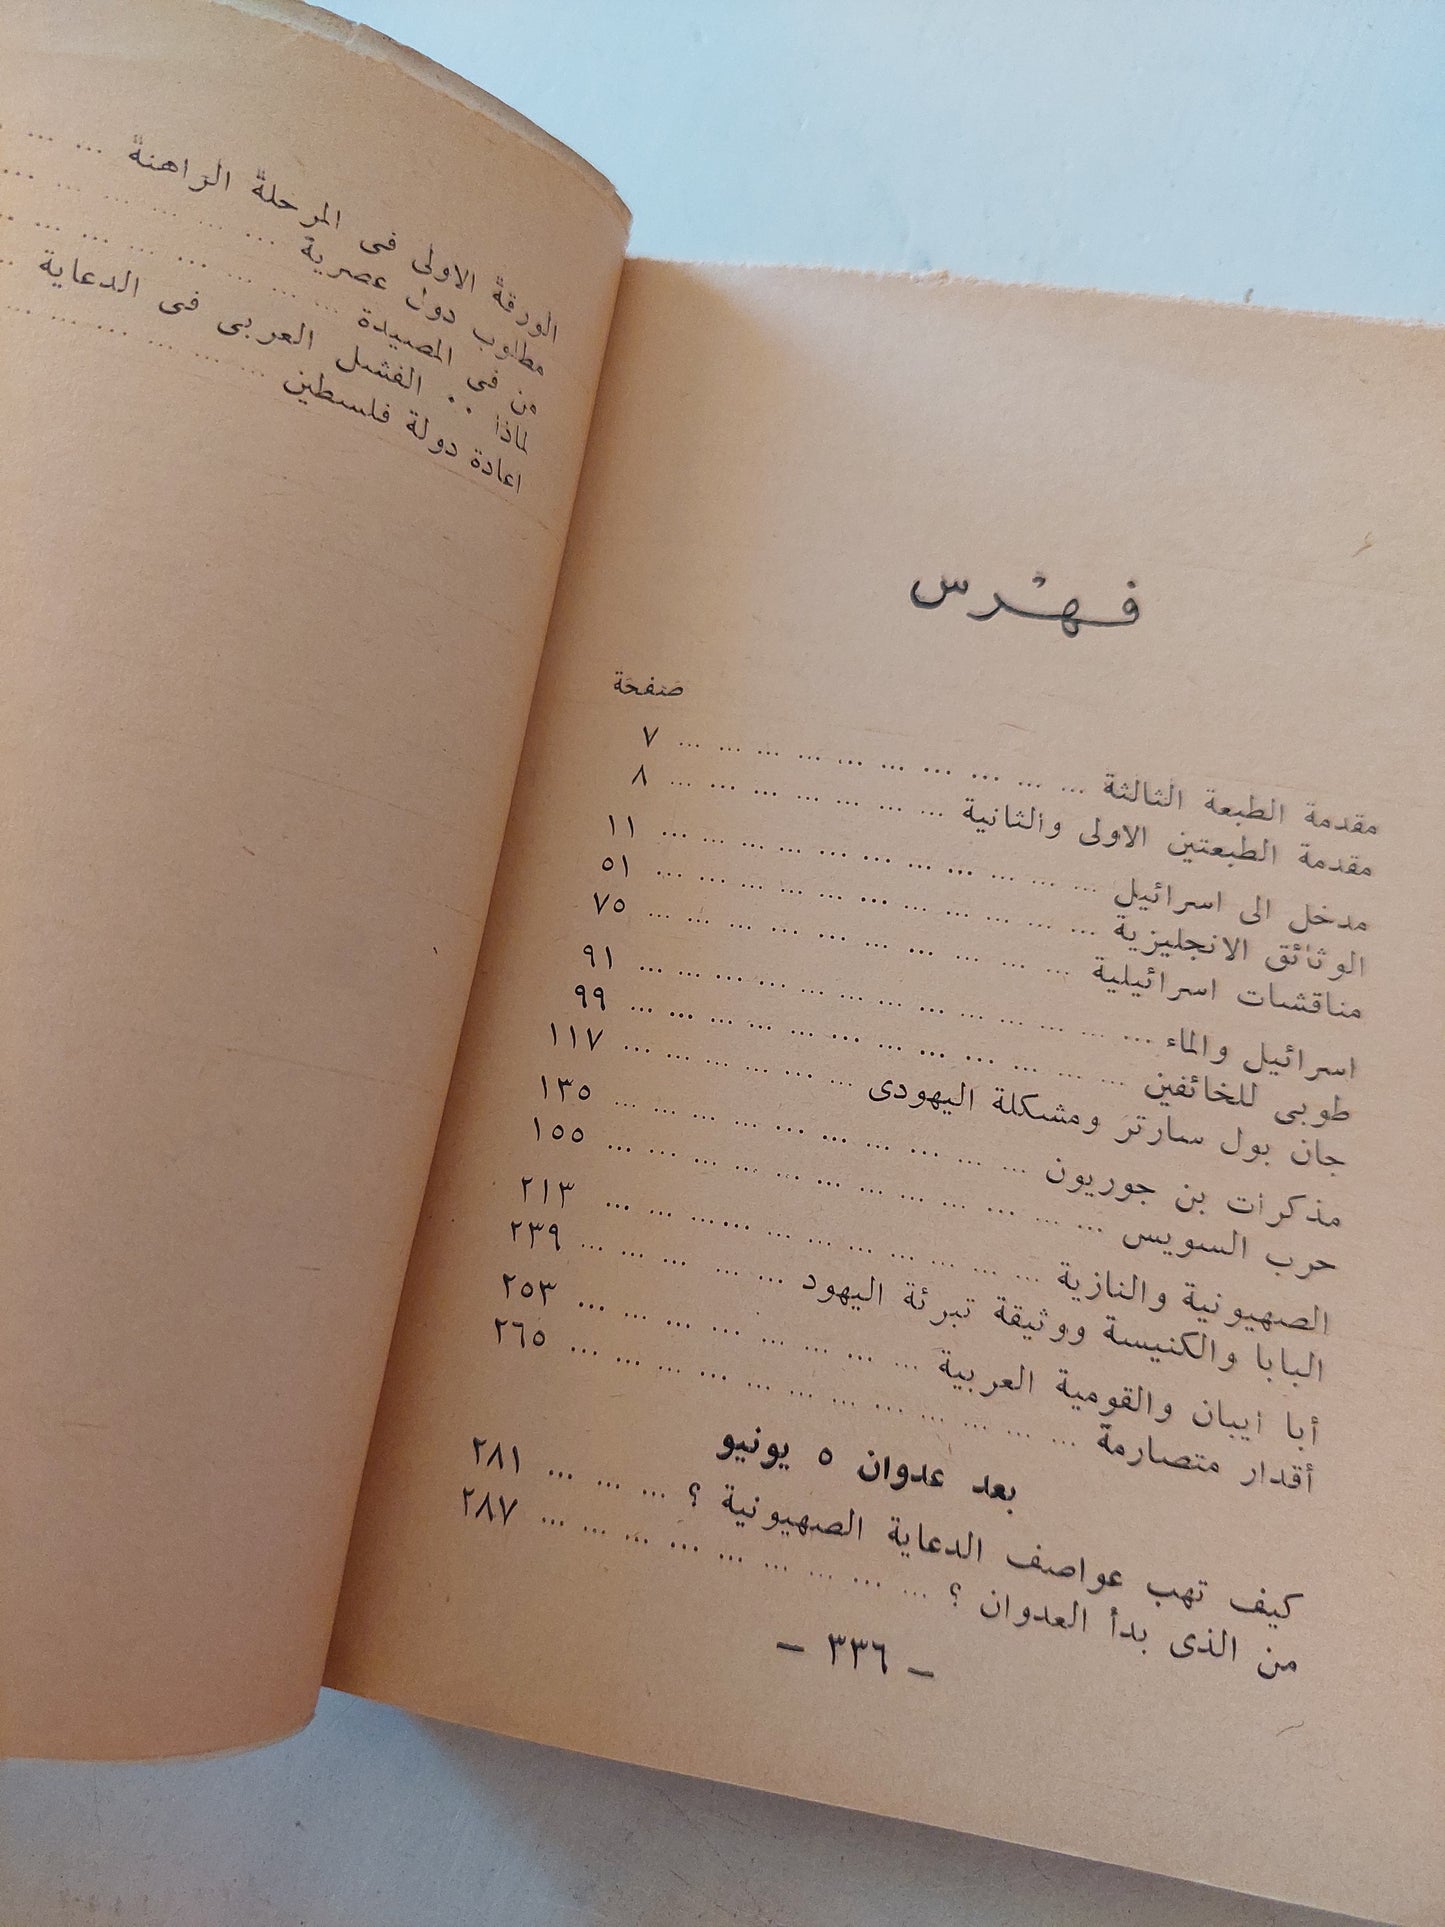 فهرس
صفحة
مقدمة الطبعة الثالثة ... ... ... ... ... ... ... ... ... ... ٧
مقدمة الطبعتين الاولى والثانية ... ... ... ... ... ... ... ٨
مدخل الى اسرائيل ... ... ... ... ... ... ... ... ... ... ... ١١
الوثائق الانجليزية ... ... ... ... ... ... ... ... ... ... ... ٥١
مناقشات اسرائيلية ... ... ... ... ... ... ... ... ... ... ٧٥
اسرائيل والماء ... ... ... ... ... ... ... ... ... ... ... ... ٩١
طوبى للخائفين ... ... ... ... ... ... ... ... ... ... ... ... ٩٩
جان بول سارتر ومشكلة اليهودى ... ... ... ... ... ... ١١٧
مذكرات بن جوريون ... ... ... ... ... ... ... ... ... ... ١٣٥
حرب السويس ... ... ... ... ... ... ... ... ... ... ... ... ١٥٥
الصهيونية والنازية ... ... ... ... ... ... ... ... ... ... ٢١٣
البابا والكنيسة ووثيقة تبرئة اليهود ... ... ... ... ... ٢٣٩
أبا ايبان والقومية العربية ... ... ... ... ... ... ... ... ٢٥٣
أقدار متصارمة ... ... ... ... ... ... ... ... ... ... ... ٢٦٥
بعد عدوان ٥ يونيو
كيف تهب عواصف الدعاية الصهيونية ؟ ... ... ... ٢٨١
من الذى بدأ العدوان ؟ ... ... ... ... ... ... ... ... ... ٢٨٧
— ٣٣٦ —
الورقة الاولى فى المرحلة الراهنة ... ...
مطلوب دول عصرية ... ... ... ... ... ...
من فى المصيدة ... ... ... ... ... ... ... ...
لماذا .. الفشل العربى فى الدعاية ...
اعادة دولة فلسطين ... ... ... ... ... ...